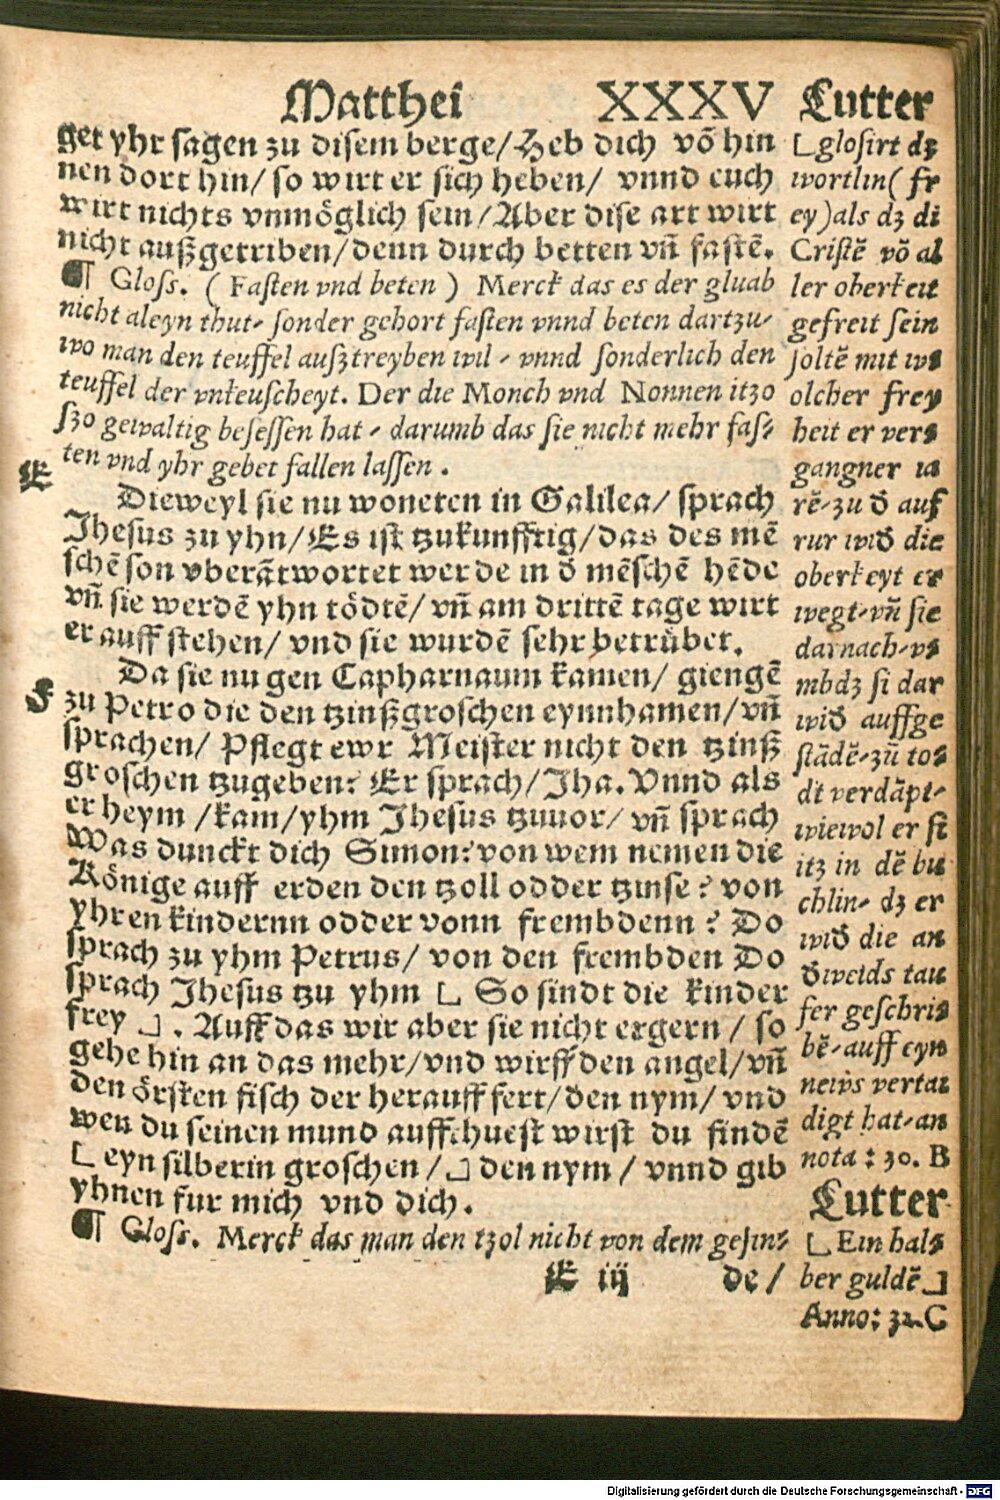 Matthei XXXV
get yhr sagen zu disem berge/Heb dich võ hin
nen dort hin/ so wirt er sich heben/ vnnd euch
wirt nichts vnmöglich sein/Aber dise art wirt
nicht außgetriben/denn durch betten vñ fastẽ.
¶ Gloss. ( Fasten vnd beten ) Merck das es der gluab
nicht aleyn thut, sonder gehort fasten vnnd beten dartzu,
wo man den teuffel außtreyben wil, vnnd sonderlich den
teuffel der vnkeuscheyt. Der die Monch vnd Nonnen itzo
szo gewaltig besessen hat, darumb das sie nicht mehr fas⸗
ten vnd yhr gebet fallen lassen.
E
Dieweyl sie nu woneten in Galilea/ sprach
Jhesus zu yhn/Es ist tzukunfftig/das des mẽ
schẽ son vberãtwortet werde in d̃ mẽschẽ hẽde
vñ sie werdẽ yhn tödtẽ/ vñ am drittẽ tage wirt
er auff stehen/ vnd sie wurdẽ sehr betrübet.
F
Da sie nu gen Capharnaum kamen/ giengẽ
zu Petro die den tzinßgroschen eynnhamen/vñ
sprachen/ Pflegt ewr Meister nicht den tzinß
groschen tzugeben? Er sprach/Jha. Vnnd als
er heym /kam/yhm Jhesus tzuuor/ vñ sprach
Was dunckt dich Simon? von wem nemen die
Könige auff erden den tzoll odder tzinse? von
yhren kindernn odder vonn frembdenn? Do
sprach zu yhm Petrus/ von den frembden Do
sprach Jhesus tzu yhm [ So sindt die kinder
frey ]. Auff das wir aber sie nicht ergern / so
gehe hin an das mehr/vnd wirff den angel/vñ
den örsten fisch der herauff fert/den nym/ vnd
wen du seinen mund auffthuest wirst du findẽ
[ eyn silberin groschen /] den nym / vnnd gib
yhnen fur mich vnd dich.
¶ Gloss. Merck das man den tzol nicht von dem gesin⸗
E iij de/
Lutter
[ glosirt dz
wortlin( fr
ey )als dz di
Cristẽ võ al
ler oberkeit
gefreit sein
soltẽ mit ws
olcher frey
heit er vers
gangner ia
rẽ, zu d̃ auf
rur wid̃ die
oberkeyt er
wegt, vñ sie
darnach, vs
mbdz si dar
wid̃ auffge
stãdẽ, zũ tos
dt verdãpt,
wiewol er si
itz in dẽ bu
chlin, dz er
wid̃ die an
d̃weids tau
fer geschris
bẽ, auff eyn
news vertai
digt hat, an
nota : 30. B
Lutter
[ Ein hals
ber guldẽ ]
Anno: 32 C
Digitalisierung gefördert durch die Deutsche Forschungsgemeinschaft - DFG